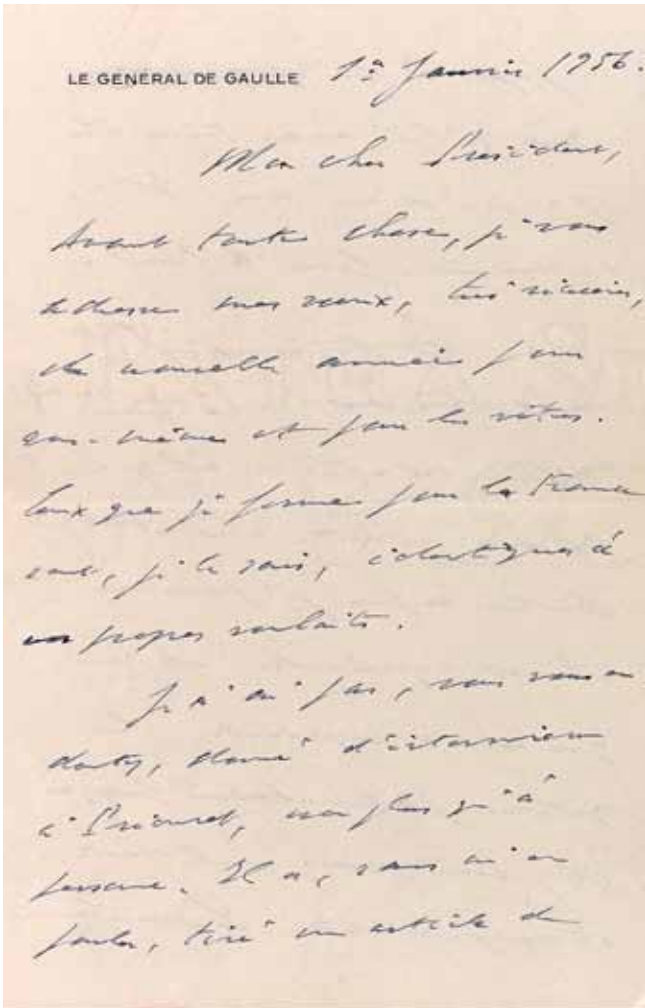 LE GÉNÉRAL DE GAULLE 1er Janvier 1956.
Mon cher Président,
Avant toute chose, je vous
adresse mes vœux, très sincères,
de nouvelle année pour
vous-même et pour les vôtres.
Ceux que je forme pour la France
sont, je le sais, identiques à
vos propres souhaits.
Je n'ai pas, vous vous en
doutez, donné d'interview
à Priouret, non plus qu'à
personne. Il a, sans m'en
parler, tiré un article de